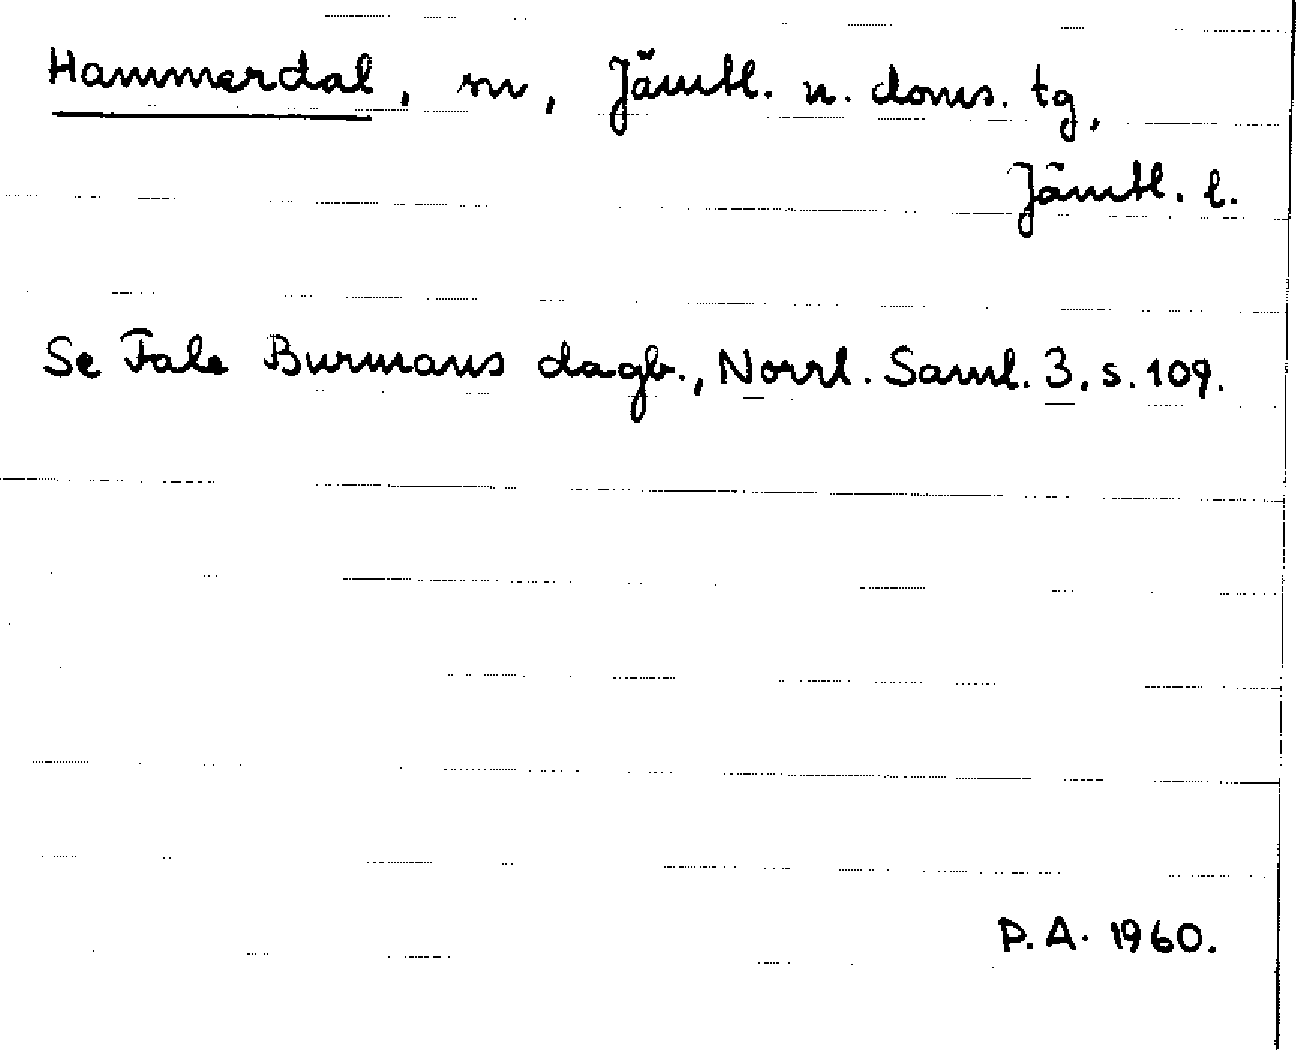 Hammerdal, sn, Jämtl. n. doms. tg,
Jämtl. l.
Se Fale Burmans dagb., Norrl. Saml. 3, s. 109.
P.A. 1960.